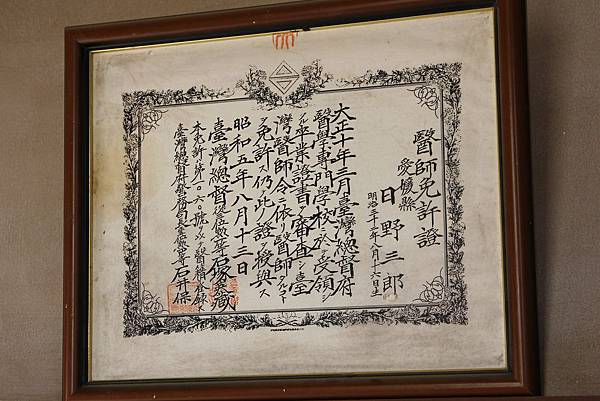 醫師免許證
愛媛縣
日野三郎
明治三十三年八月十六日生
大正十年三月臺灣總督府
醫學專門學校ニ於テ受領シ
タル卒業證書ヲ審査シ臺
灣醫師令ニ依リ醫師タルコト
ヲ免許ス仍テ此ノ證ヲ授與ス
昭和五年八月十三日
臺灣總督從三位勳一等石塚英藏
本免許ハ第一〇六〇號ヲ以テ醫籍ニ登錄ス
臺灣總督府警務局長 石井保